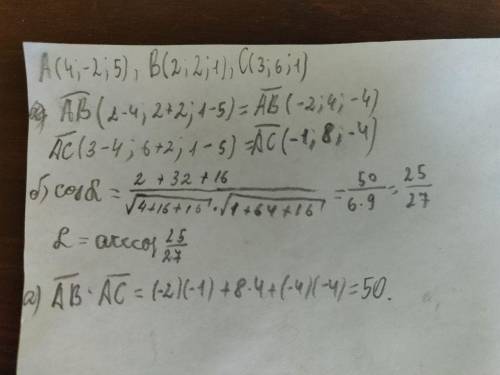 A(4;-2;5), B(2;2;1), C(3;6;1)
AB(2-4; 2+2; 1-5) = AB(-2; 4; -4)
AC(3-4; 6+2; 1-5) = AC(-1; 8; -4)
б) cosα = (2 + 32 + 16)/(√4+16+16 · √1+64+16) = 50/(6·9) = 25/27
α = arccos 25/27
а) AB · AC = (-2)(-1) + 8·4 + (-4)(-4) = 50.